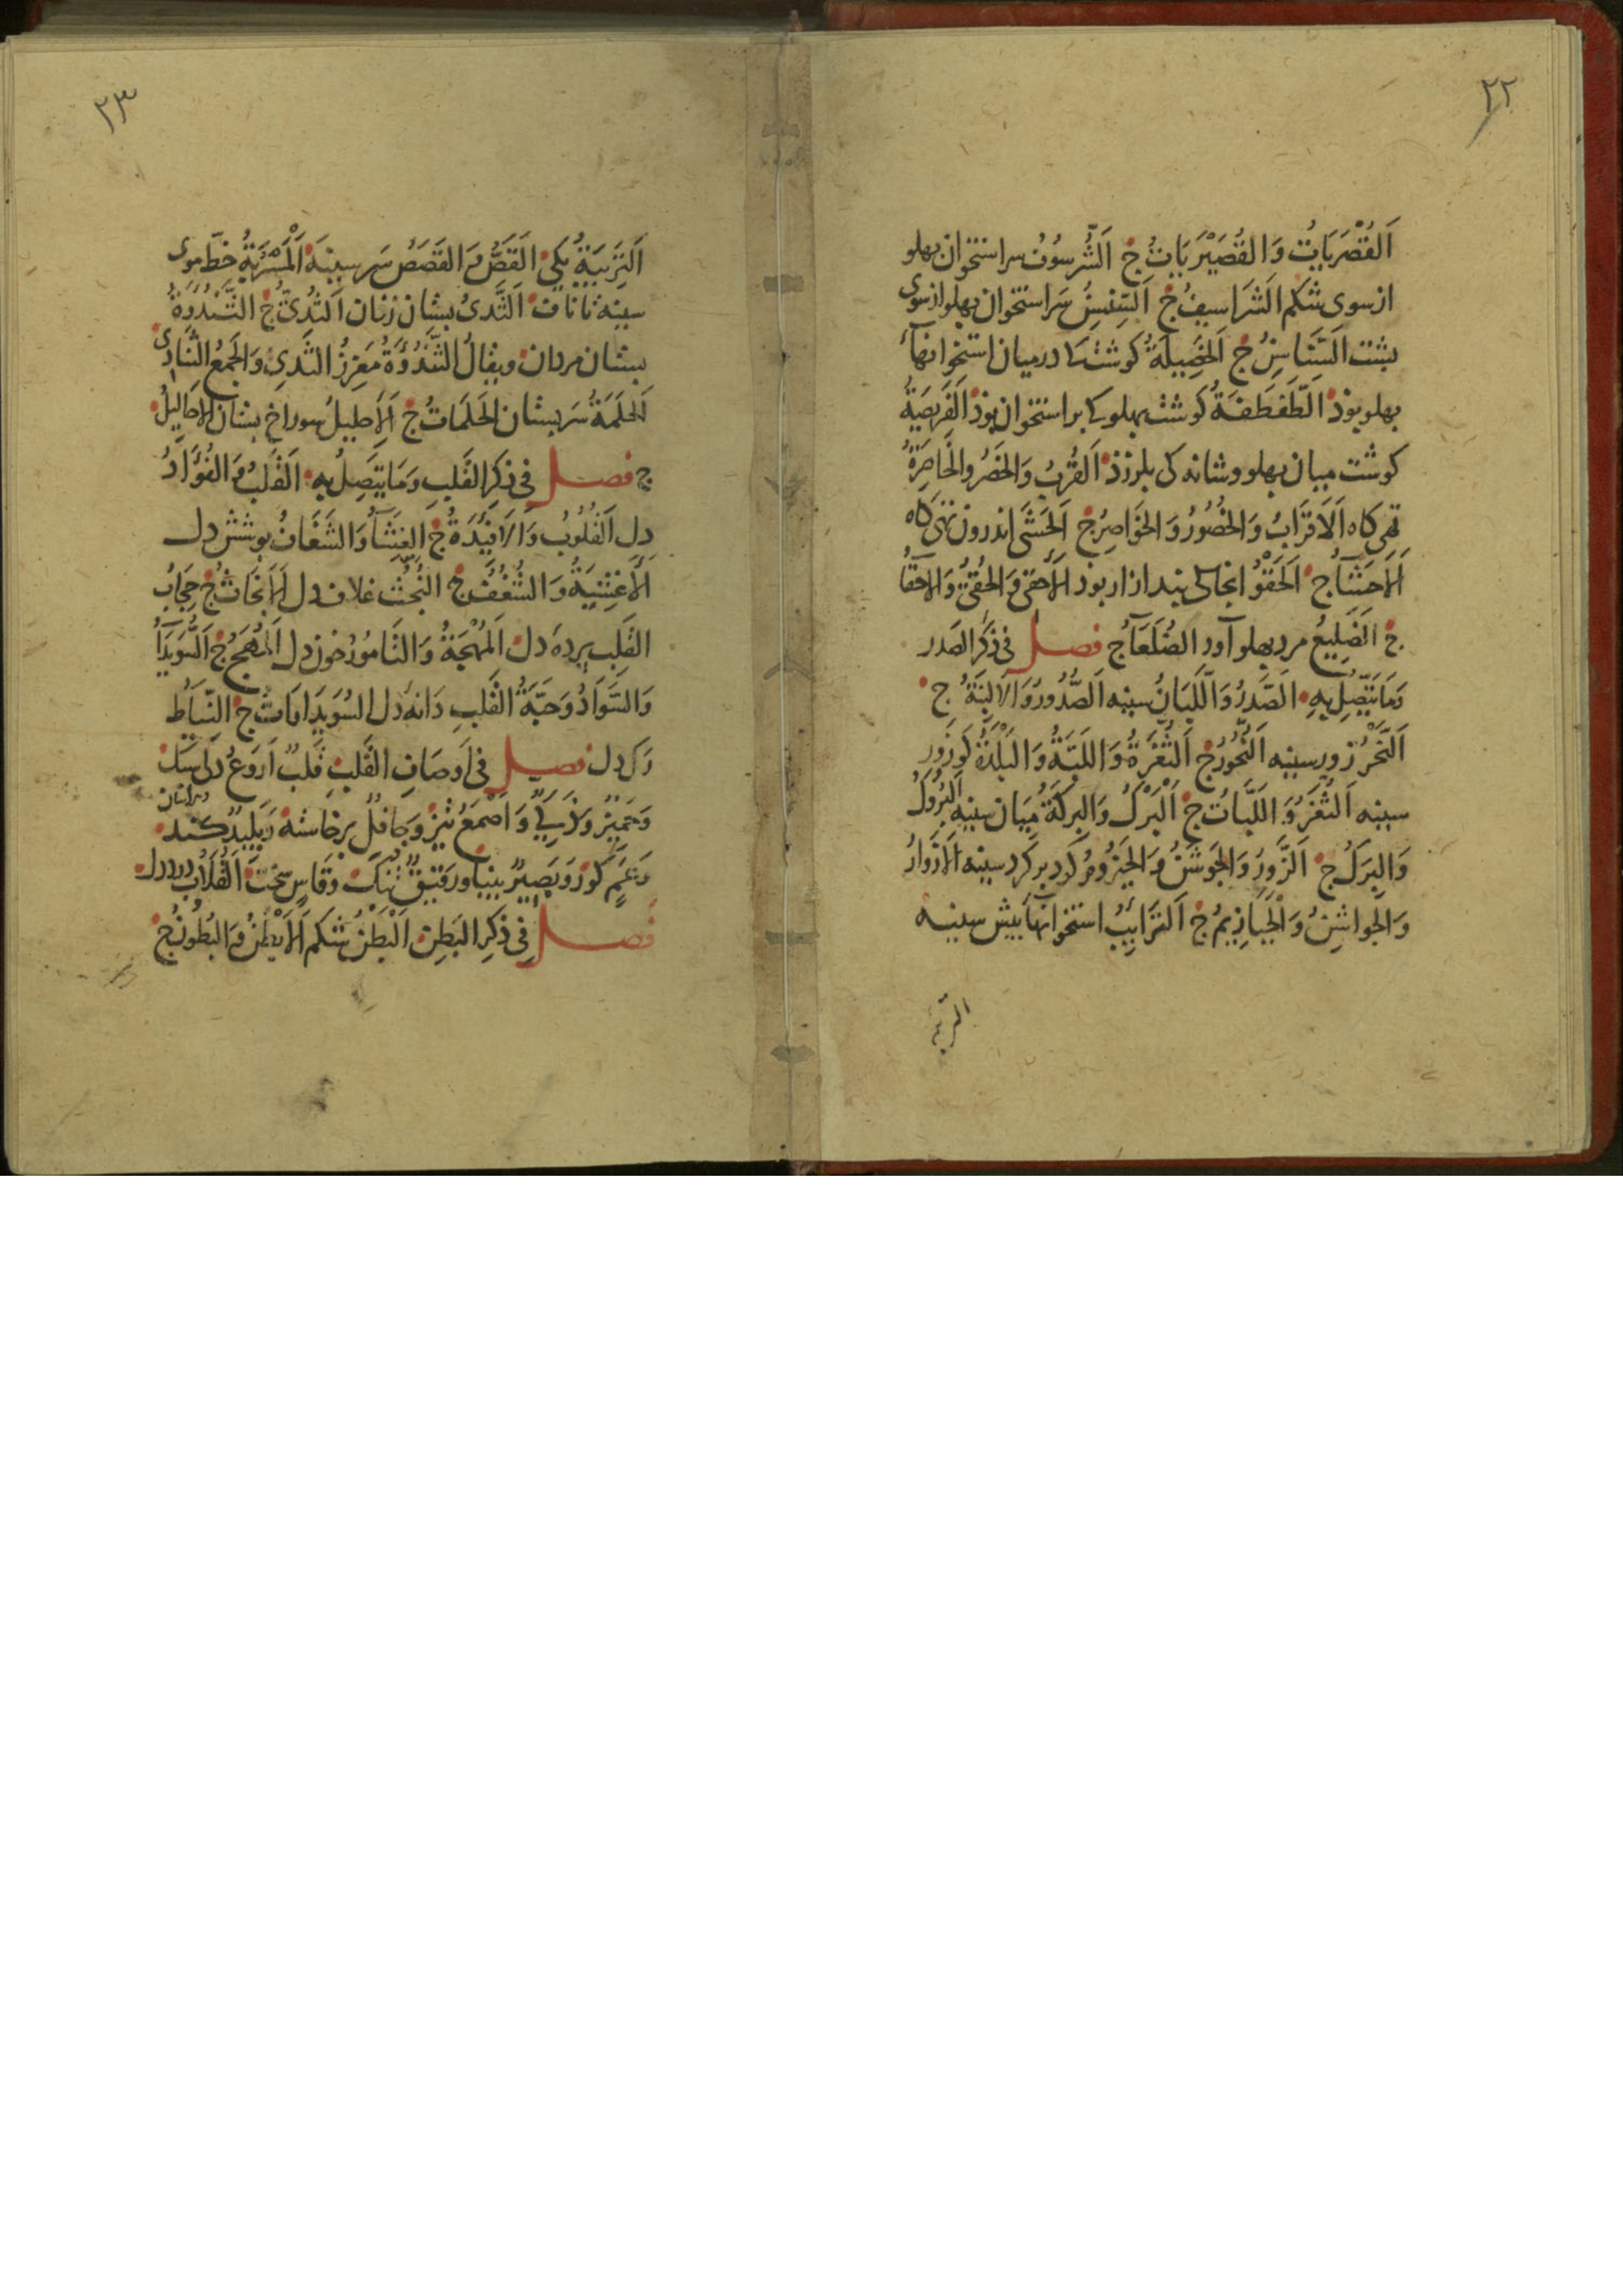 ٢٢
اَلقُصْرَيَاتُ وَالقُصَيْرَيَاتُ ج اَلشُّرسُوْفُ سراستخوان پهلو
از سوی شکم الشَراسيفُ ج اَلسِّنسِنُ سَراستخوان پهلو از سوی
پشت السَّنَاسِنُ ج اَلخَصِيلَةُ کوشتها درمیان استخوانهآء
پهلو بوذ الطَّفطَفَةُ کوشت پهلو کی بر استخوان بوذ الفَرِيصَةُ
کوشت میان پهلو و شانه کی بلرزذ اَلقُربُ وَالخَصْرُ والخَاصِرَةُ
تهی کاه اَلاَقرَابُ وَالخُصُورُ وَالخَوَاصِرُ ج اَلحَشَی اندرون تهی کاه
اَلاَحشَآءُ ج اَلحَقْوُ انجا کی بند ازار بود اَلاَحقی وَالحُقِیُّ وَالاَحقَآءُ
ج الضَلِيعُ مرد پهلو آور الضُلَعَآءُ ج فصل فی ذکر الصَدر
وَمَا يَتَّصِلُ بِهِ الصَّدرُ وَاللَّبَانُ سینه اَلصُّدُورُ وَالاَلبِنَةُ ج
اَلنَّحْرُ زور سینه اَلنُّحُورُ ج اَلثُّغرَةُ وَاللَّبَّةُ وَالبَلْدَةُ کو زور
سینه اَلثُّغَرُ وَاللَّبَّاتُ ج اَلبَرْكُ وَالبِركَةُ میان سینه اَلبُرُوكُ
وَالبِرَكُ ج اَلزَّورُ وَالجَوشَنُ وَالحَيزُومُ کرد بر کرد سینه اَلاَزوَارُ
وَالجواشِنُ وَالحَيَازِيمُ ج اَلتَّرَائِبُ استخوانهآ پیش سینه
التریبه
٢٣
اَلتَرِيبَةُ یکی القَصُّ وَ القَصَصُ سَر سینه اَلْمَسْرُبَةُ خَطّ موی
سینه تا ناف اَلثَّدیُ پستان زنان اَلثُّدِیُّ ج الثَّنْدُوَةُ
پستان مردان ويقالُ الثَّنْدُوَةُ مَغرِزُ الثَّدیِ وَالجَمعُ الثَّنَادِی
اَلحَلَمَةُ سَر پستان اَلحَلَمَاتُ ج اَلاِحلِيلُ سوراخ پستان اَلاَحَالِيلُ
ج فصل فی ذکرِ القَلبِ وَمَا يَتَّصِلُ بِهِ القَلبُ وَالفُؤَادُ
دل اَلقُلُوبُ وَالاَفئِدَةُ ج الغِشَآءُ وَالشَّغَافُ پوشش دل
الاَغشِيَةُ وَالشُغُفُ ج النُّجُثُ غلاف دل اَلاَنجَاثُ ج حِجَابُ
القَلبِ پرده دل اَلمُهْجَةُ وَالتَّامُورُ خون دل اَلمُهَجُ ج السُّوَيدَآءُ
وَالسَّوَادُ وَحَبَّةُ القَلبِ دانه دل السُّوَيدَاوَاتُ ج النِّيَاطُ
رك دل فصل فی اَوصَافِ القَلبِ قَلبٌ اَروَعُ دلی
هراسان
وَحَمِيزٌ وَذَکِیٌّ وَاَصْمَعُ تیز وَجافلٌ برخاسته وَبَلِيدٌ کند
وَعَمٍ کور وَبَصِيرٌ بینا ورَقيقٌ تنك وَقَاسٍ سخت القُلَابُ درد دل
فصل فی ذکرِ البَطن اَلبَطنُ شکم اَلاَبطُنُ وَالبُطُونُ ج